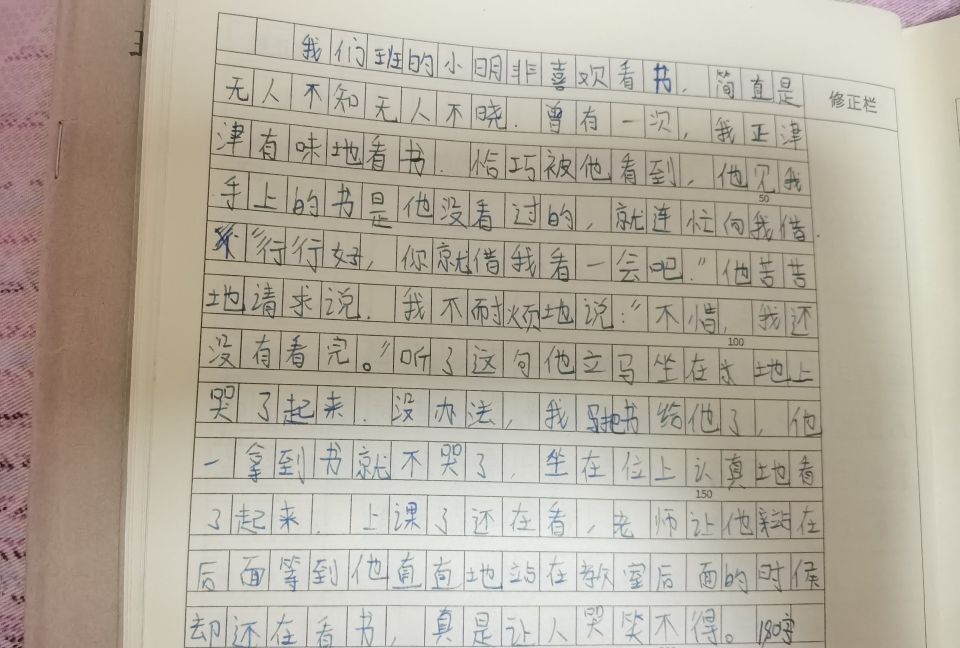 我们班的小明非喜欢看书，简直是
修正栏
无人不知无人不晓．曾有一次，我正津
津有味地看书．恰巧被他看到，他见我
50
手上的书是他没看过的，就连忙向我借．
“行行好，你就借我看一会吧．”他苦苦
地请求说．我不耐烦地说：“不借，我还
100
没有看完。”听了这句他立马坐在地上
哭了起来．没办法，我把书给他了，他
一拿到书就不哭了，坐在位上认真地看
150
了起来．上课了还在看，老师让他站在
后面等到他直直地站在教室后面的时候
却还在看书，真是让人哭笑不得。180字